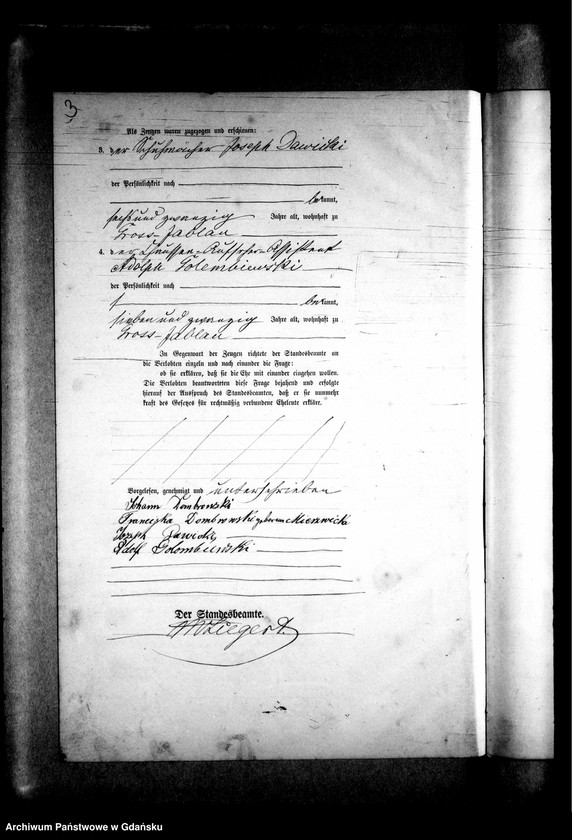 3
Als Zeugen waren zugezogen und erschienen:
3. der Schuhmacher Joseph Dawicki
der Persönlichkeit nach
bekannt,
sechs und zwanzig Jahre alt, wohnhaft zu
Gross-Jablau
4. der Chaussee-Aufseher-Assistent
Adolph Golembiewski
der Persönlichkeit nach
bekannt,
sieben und zwanzig Jahre alt, wohnhaft zu
Gross-Jablau
In Gegenwart der Zeugen richtete der Standesbeamte an
die Verlobten einzeln und nach einander die Frage:
ob sie erklären, daß sie die Ehe mit einander eingehen wollen.
Die Verlobten beantworteten diese Frage bejahend und erfolgte
hierauf der Ausspruch des Standesbeamten, daß er sie nunmehr
kraft des Gesetzes für rechtmäßig verbundene Eheleute erkläre.
Vorgelesen, genehmigt und unterschrieben
Johann Dombrowski
Franciszka Dombrowski geborene
Jozeph Dawicki
Adolf Golombiewski
Der Standesbeamte.
Archiwum Państwowe w Gdańsku